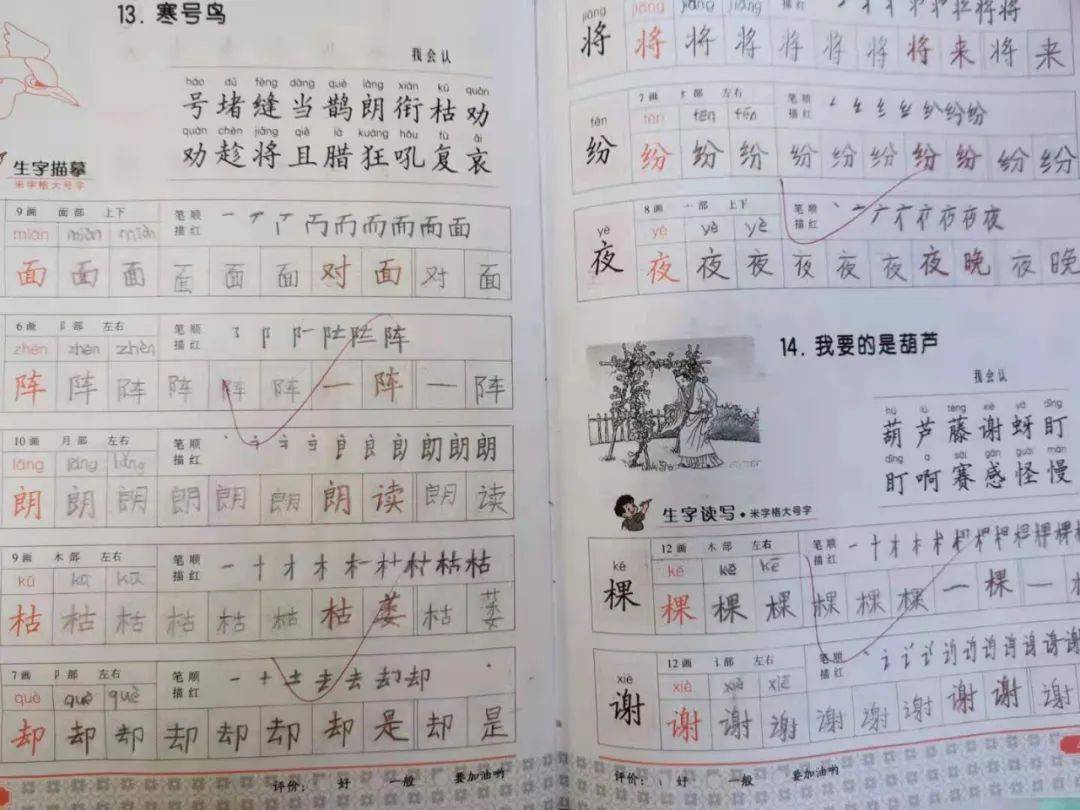 13. 寒号鸟
我会认
háo dǔ fèng dāng què lǎng xián kū quàn
号堵缝当鹊朗衔枯劝
quàn chèn jiāng qiě là kuáng hǒu fù āi
劝趁将且腊狂吼复哀
生字描摹
米字格大号字
9画 面部 上下 笔顺 一 丆 丆 丙 而 而 而 面 面
miàn miàn miàn 描红
面 面 面 面 面 面 对 面 对 面
6画 阝部 左右 笔顺 阝 阵
zhèn zhèn zhèn 描红
阵 阵 阵 阵 阵 阵 一 阵 一 阵
10画 月部 左右 笔顺 朗 朗
lǎng lǎng lǎng 描红
朗 朗 朗 朗 朗 朗 朗 读 朗 读
9画 木部 左右 笔顺 一 十 才 木 枯 枯
kū kū kū 描红
枯 枯 枯 枯 枯 枯 枯 萎 枯 萎
7画 卩部 左右 笔顺 一 十 土 去 去 却 却
què què què 描红
却 却 却 却 却 却 却 是 却 是
评价: 好 一般 要加油哟
jiāng jiāng jiāng jiāng 描红 将 将
将 将 将 将 将 将 将 将 来 将 来
7画 纟部 左右 笔顺 纟 纷 纷 纷
fēn fēn fēn fēn 描红
纷 纷 纷 纷 纷 纷 纷 纷 纷 纷 纷
8画 亠部 上下 笔顺 丶 亠 夜 夜 夜
yè yè yè yè 描红
夜 夜 夜 夜 夜 夜 夜 夜 晚 夜 晚
14. 我要的是葫芦
我会认
hú lú téng xiè yá dīng
葫芦藤谢蚜盯
dīng a sài gǎn guài màn
盯啊赛感怪慢
生字读写·米字格大号字
12画 木部 左右 笔顺 一 十 才 木 棵 棵
kē kē kē kē 描红
棵 棵 棵 棵 棵 棵 棵 一 棵 一
12画 讠部 左右 笔顺 讠 谢 谢
xiè xiè xiè xiè 描红
谢 谢 谢 谢 谢 谢 谢 谢 谢 谢
评价: 好 一般 要加油哟